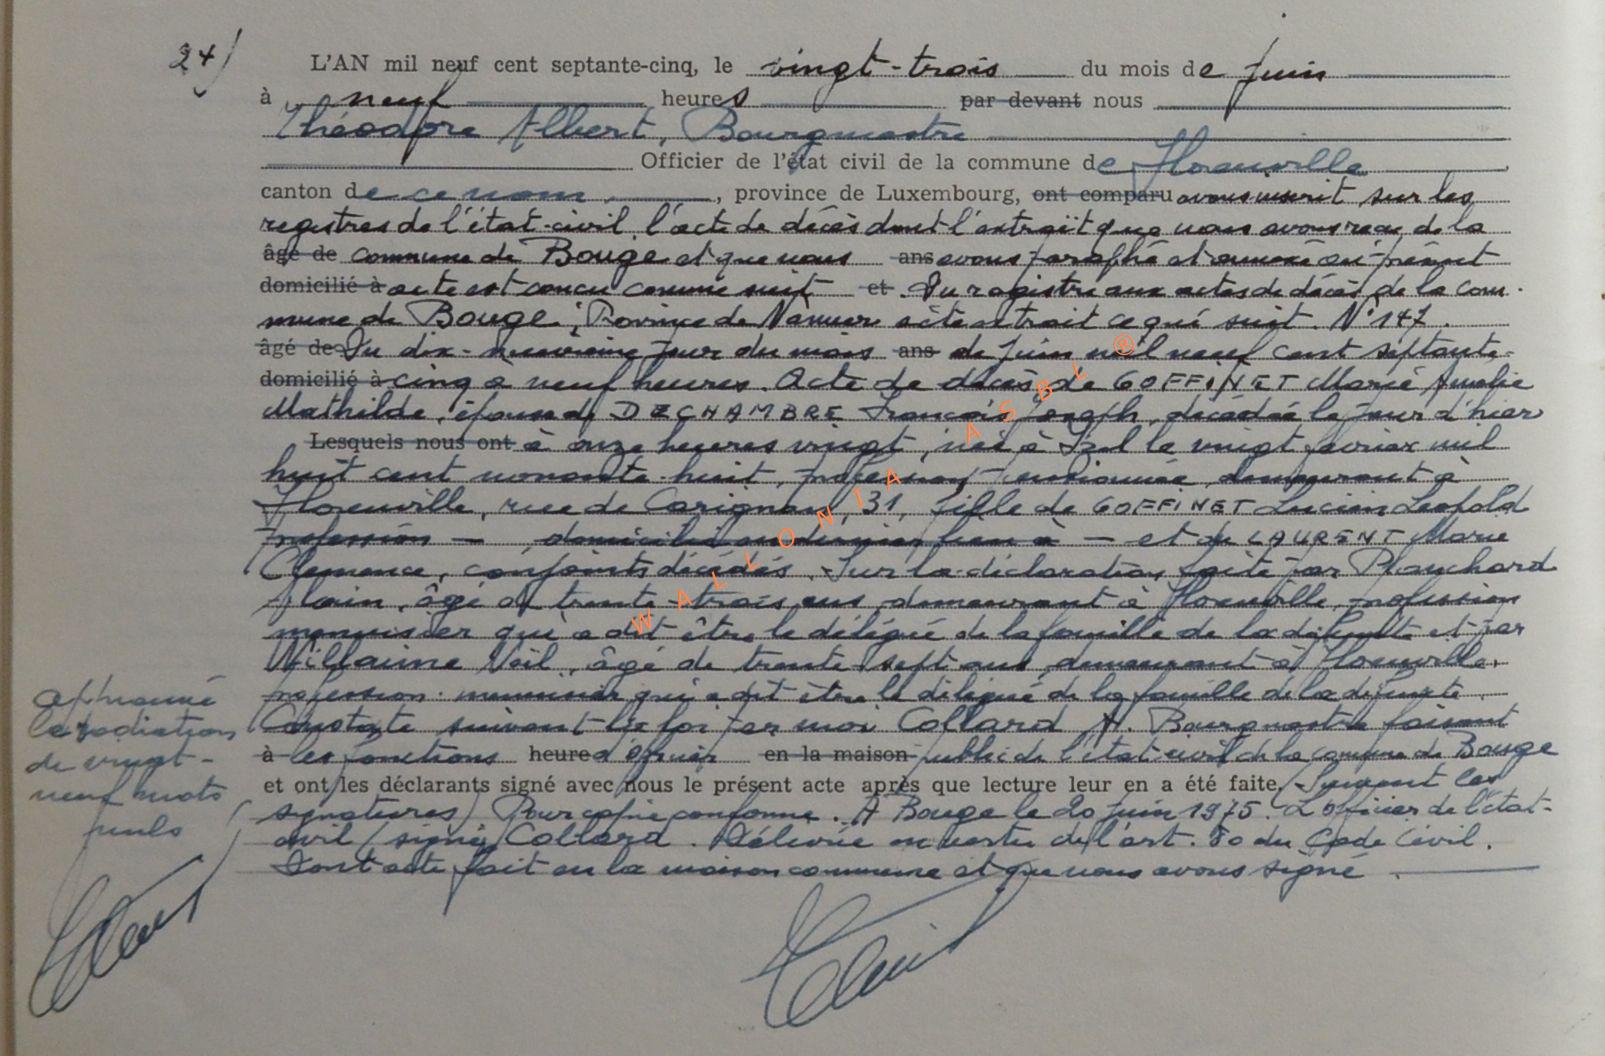 24/
L'AN mil neuf cent septante-cinq, le vingt-trois du mois de juin
à neuf heures par devant nous
Théodore Albert, Bourgmestre
Officier de l'état civil de la commune de Florenville
canton de ce nom, province de Luxembourg, ont comparu avons inscrit sur les
registres de l'état-civil, l'acte de décès dont l'extrait que nous avons reçu de la
âgé de commune de Bouge et que nous ans avons paraphé et annexé au présent
domicilié à acte est conçu comme suit et. Du registre aux actes de décès de la com-
mune de Bouge, Province de Namur a été extrait ce qui suit. N° 147.
âgé de Du dix-neuvième jour du mois ans de juin mil neuf cent septante-
domicilié à cinq à neuf heures. Acte de décès de GOFFINET Marie Amélie
Mathilde, épouse de DECHAMBRE François Joseph, décédée le jour d'hier
Lesquels nous ont à onze heures vingt, née à Izel le vingt février mil
huit cent nonante-huit, profession pensionnée, demeurant à
Florenville, rue de Carignan, 31, fille de GOFFINET Lucien Léopold
profession — domicilié en dernier lieu à — et de LAURENT Marie
Clémence, conjoints décédés. Sur la déclaration faite par Planchard
Alain, âgé de trente-trois ans, demeurant à Florenville, profession
menuisier qui a dit être le délégué de la famille de la défunte et par
Willaime Noil, âgé de trente sept ans, demeurant à Florenville,
profession: menuisier qui a dit être le délégué de la famille de la défunte.
Constaté suivant la loi par moi Collard A. Bourgmestre faisant
à les fonctions heures d'officier en la maison public de l'état-civil de la commune de Bouge
et ont les déclarants signé avec nous le présent acte après que lecture leur en a été faite, (suivent les
signatures) Pour copie conforme. A Bouge le 20 juin 1975. L'officier de l'état-
civil (signé) Collard. Délivrée en vertu de l'art. 80 du Code Civil.
Dont acte fait en la maison communale et que nous avons signé.
approuvé
la radiation
de vingt-
neuf mots
nuls
WALLONIA ASBL ®